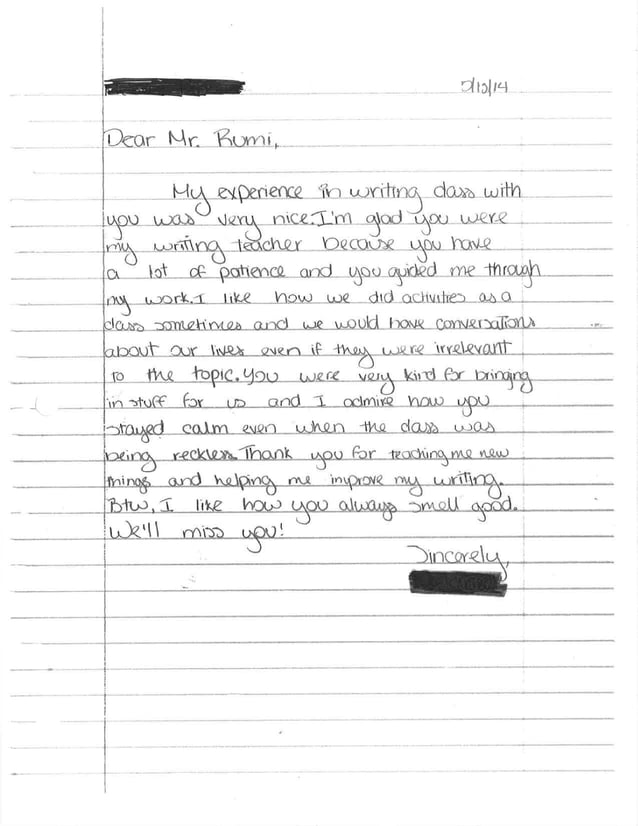 5/12/14
Dear Mr. Rumi,
My experience in writing class with
you was very nice. I'm glad you were
my writing teacher because you have
a lot of patience and you guided me through
my work. I like how we did activities as a
class sometimes and we would have conversations
about our lives even if they were irrelevant
to the topic. You were very kind for bringing
in stuff for us and I admire how you
stayed calm even when the class was
being reckless. Thank you for teaching me new
things and helping me improve my writing.
Btw, I like how you always smell good.
We'll miss you!
Sincerely,